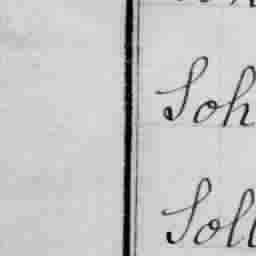 Soh
Soll